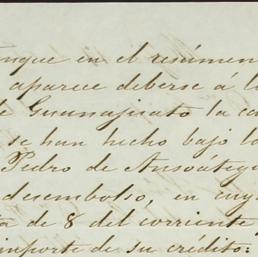 unque en el resúmen
aparece deberse á l
de Guanajuato la ca
se han hecho bajo l
Pedro de Ansoátegu
desembolso, en cuy
ta de 8 del corriente
importe de su crédito: